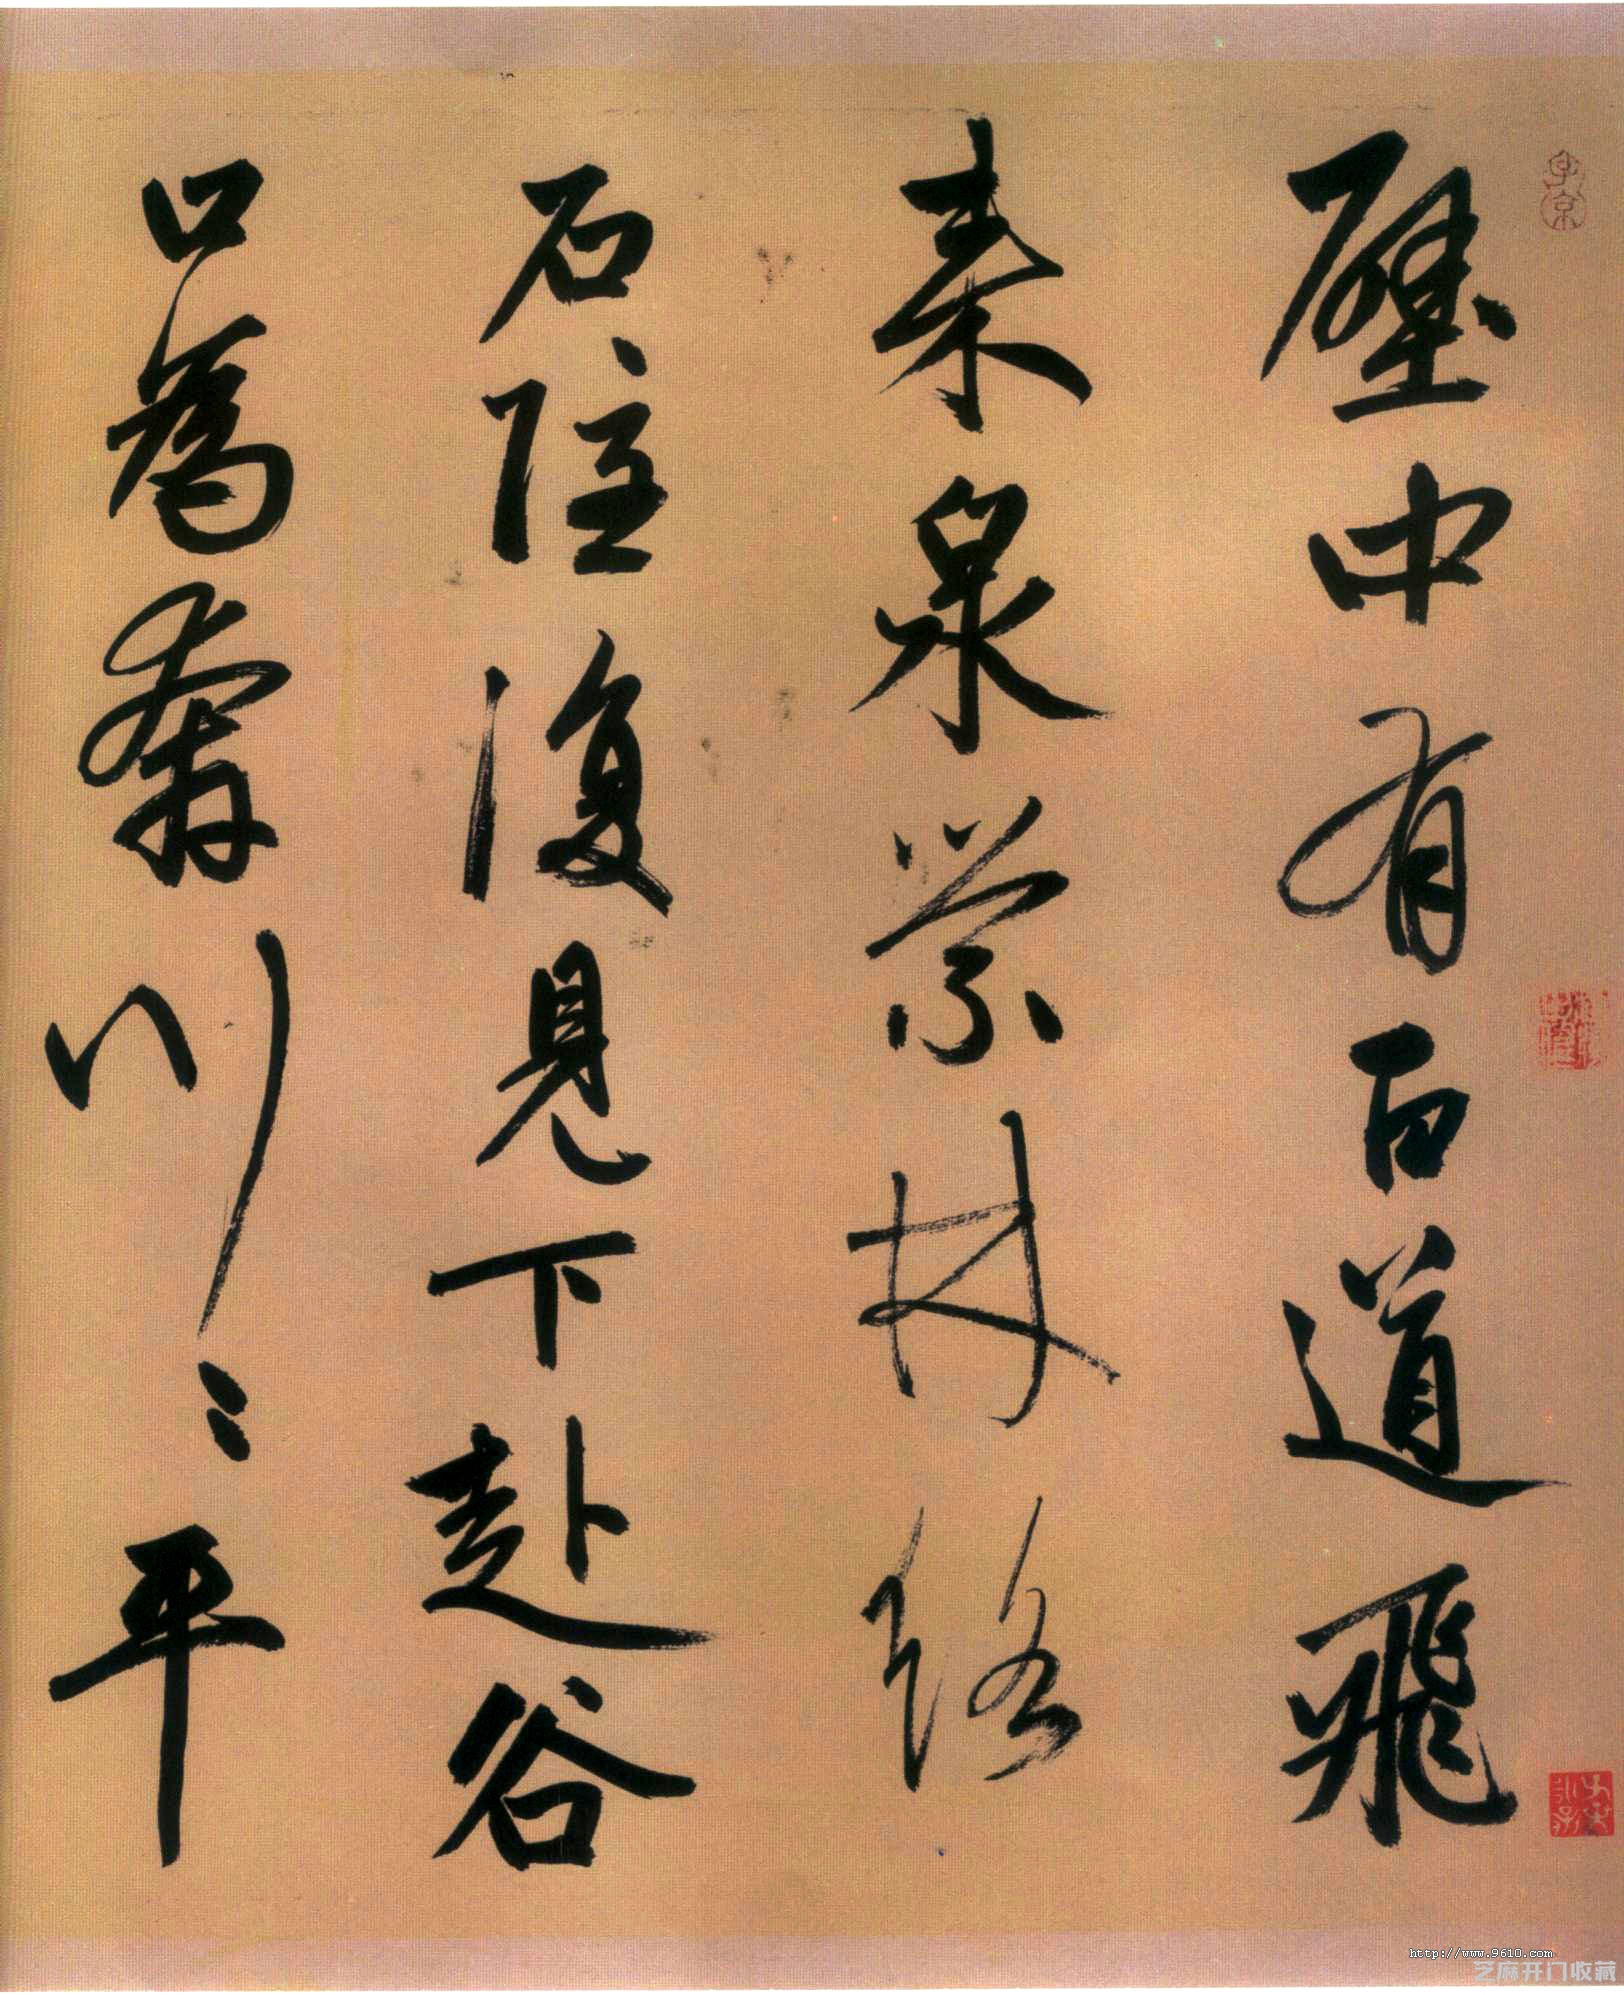 壁中有百道飛
來泉縈林絡
石隱復見下赴谷
口為奔川〻平
子京
http://www.9610.com
芝麻开门收藏